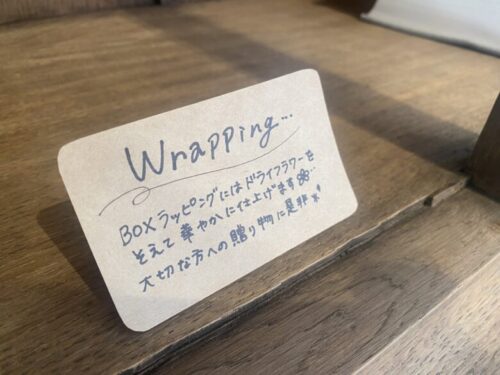 Wrapping...
BOXラッピングにはドライフラワーを
そえて華やかに仕上げます...
大切な方への贈り物に是非!